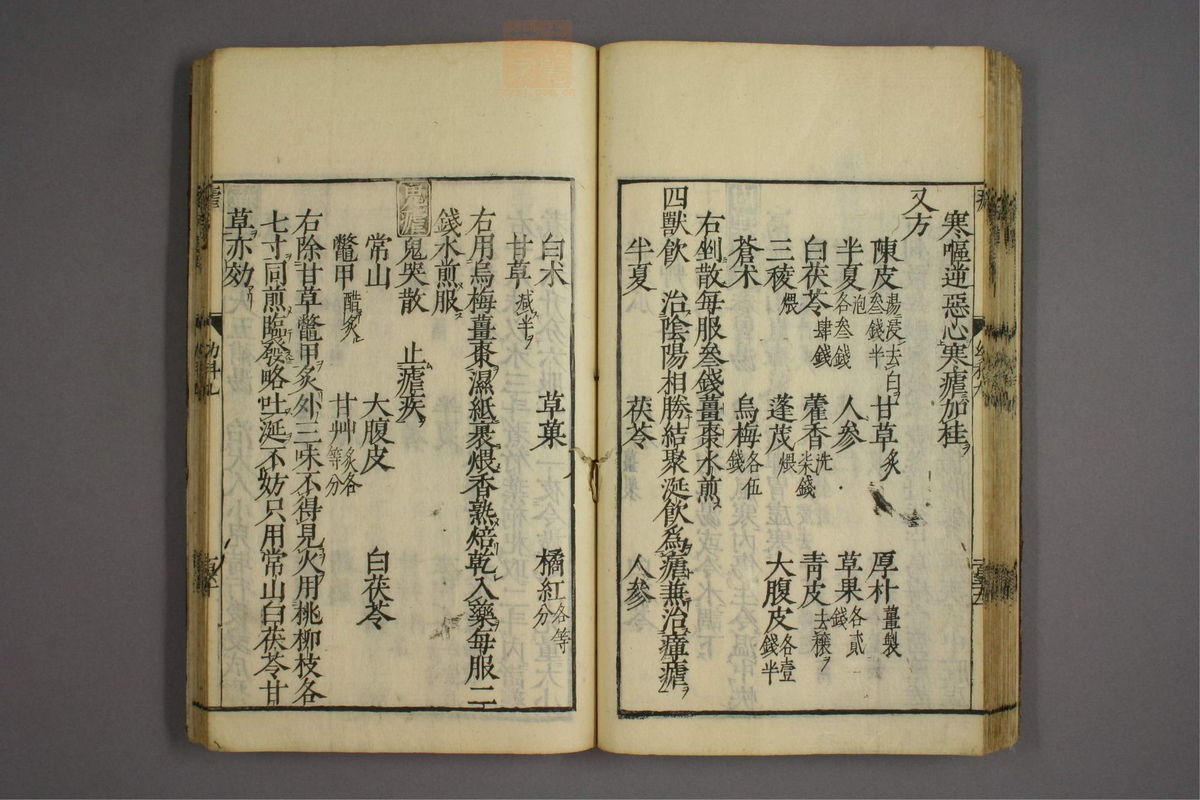 寒嘔逆惡心寒瘧加桂ヲ
又方
陳皮湯浸去白ヲ叁錢半 甘草炙 厚朴薑製
半夏泡各叁錢 人參 草果各貳錢
白茯苓肆錢 藿香洗柒錢 靑皮去穰ヲ
三稜煨 蓬茂煨 大腹皮各壹錢半
蒼朮 烏梅各伍錢
右剉散每服叁錢薑棗水煎ス
四獸飮 治陰陽相勝結聚涎飮為瘧兼治瘴瘧ヲ
半夏 茯苓 人參
白朮 草菓 橘紅各等分
甘草減半ヲ
右用烏梅薑棗濕紙裹煨香熟焙乾入藥每服二
錢水煎服ス
鬼瘧 鬼哭散 止瘧疾ヲ
常山 大腹皮 白茯苓
鼈甲醋炙 甘艸炙各等分
右除甘草鼈甲炙外三味不得見火用桃柳枝各
七寸同煎臨發略吐涎不妨只用常山白茯苓甘
草亦効